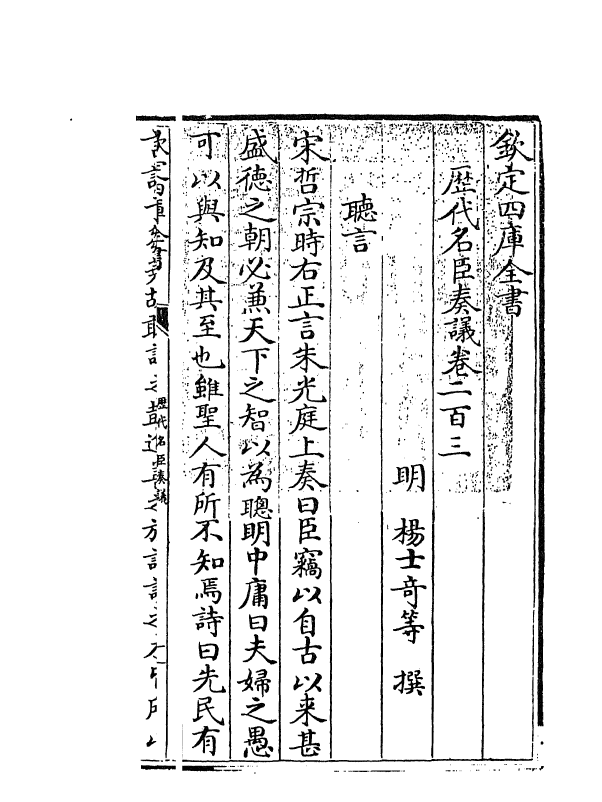 欽定四庫全書
歴代名臣奏議卷二百三
明　楊士奇等　撰
聽言
宋哲宗時右正言朱光庭上奏曰臣竊以自古以来甚
盛徳之朝必兼天下之智以為聰明中庸曰夫婦之愚
可以與知及其至也雖聖人有所不知焉詩曰先民有
歴代名臣奏議